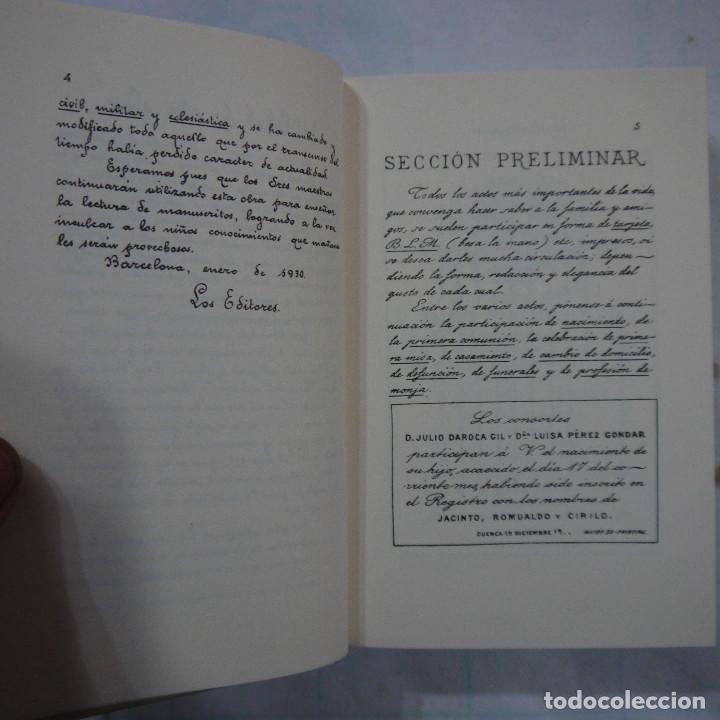 4
civil, militar y eclesiástica y se ha cambiado y
modificado todo aquello que por el transcurso del
tiempo había perdido caracter de actualidad.
Esperamos pues que los Sres maestros
continuarán utilizando esta obra para enseñar
la lectura de manuscritos, logrando a la vez
inculcar a los niños conocimientos que mañana
les serán provechosos.
Barcelona, enero de 1930.
Los Editores.
5
SECCIÓN PRELIMINAR
Todos los actos más importantes de la vida,
que convenga hacer saber á la familia y ami-
gos, se suelen participar en forma de tarjeta
B.L.M. (besa la mano) etc, impresos, si
se desea darles mucha circulación; depen-
diendo la forma, redacción y elegancia del
gusto de cada cual.
Entre los varios actos, pónense á conti-
nuación la participación de nacimiento, de
la primera comunión, la celebración de prime-
ra misa, de casamiento, de cambio de domicilio,
de defunción, de funerales y de profesión de
monja.
Los consortes
D. JULIO DAROCA GIL Y Dña LUISA PÉREZ GONDAR
participan á V. el nacimiento de
su hijo, acaecido el día 17 del co-
rriente mes, habiendo sido inscrito en
el Registro con los nombres de
JACINTO, ROMUALDO Y CIRILO.
CUENCA 19 DICIEMBRE 19.. 30-PRINCIPAL
todocoleccion.net